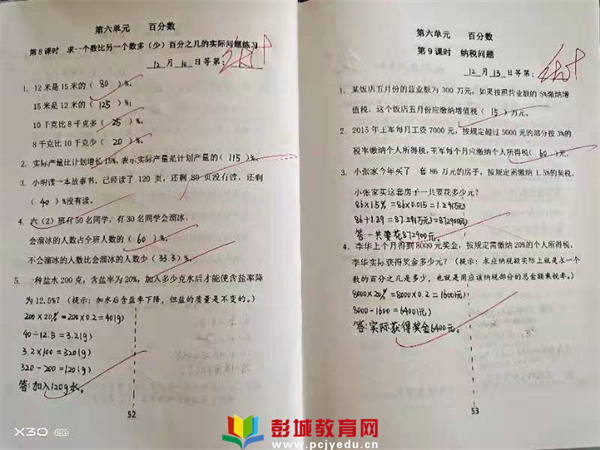 第六单元 百分数
第8课时 求一个数比另一个数多（少）百分之几的实际问题练习
12月10日等第：
1. 12米是15米的（ 80 ）%。
15米是12米的（ 125 ）%。
10千克比8千克多（ 25 ）%。
8千克比10千克少（ 20 ）%。
2. 实际产量比计划增长15%，表示实际产量是计划产量的（ 115 ）%。
3. 小明读一本故事书，已经读了120页，还剩80页没有读，还剩
（ 40 ）%没有读。
4. 六（2）班有50名同学，有30名同学会溜冰。
会溜冰的人数占全班人数的（ 60 ）%。
不会溜冰的人数比会溜冰的人数少（ 33.3 ）%。
5. 一种盐水200克，含盐率为20%，加入多少克水后才能使含盐率降
为12.5%？（提示：加水后含盐率下降，但盐的质量是不变的。）
200×20%=200×0.2=40(g)
40÷12.5=3.2(g)
3.2×100=320(g)
320-200=120(g)
答：加入120g水。
52
第六单元 百分数
第9课时 纳税问题
12月13日等第：
1. 某饭店五月份的营业额为300万元，如果按照营业额的5%缴纳增
值税，这个饭店五月份应缴纳增值税（ 15 ）万元。
2. 2015年王军每月工资7000元，按规定超过5000元的部分按3%的
税率缴纳个人所得税，王军每个月应缴纳个人所得税（ 60 ）元。
3. 小张家今年买了一套86万元的房子，按规定需缴纳1.5%的契税，
小张家买这套房子一共要花多少元？
86×1.5%=86×0.015=1.29(万)
86+1.29=87.29(万)=872900(元)
答：一共要花872900元。
4. 李华上个月得到8000元奖金，按规定需缴纳20%的个人所得税，
李华实际获得奖金多少元？（提示：求应纳税额实际上就是求一个
数的百分之几是多少，也就是用应该纳税部分的总金额乘税率。）
8000×20%=8000×0.2=1600(元)
8000-1600=6400(元)
答：实际获得奖金6400元。
53
X30 5G
彭城教育网
www.pcjyedu.cn